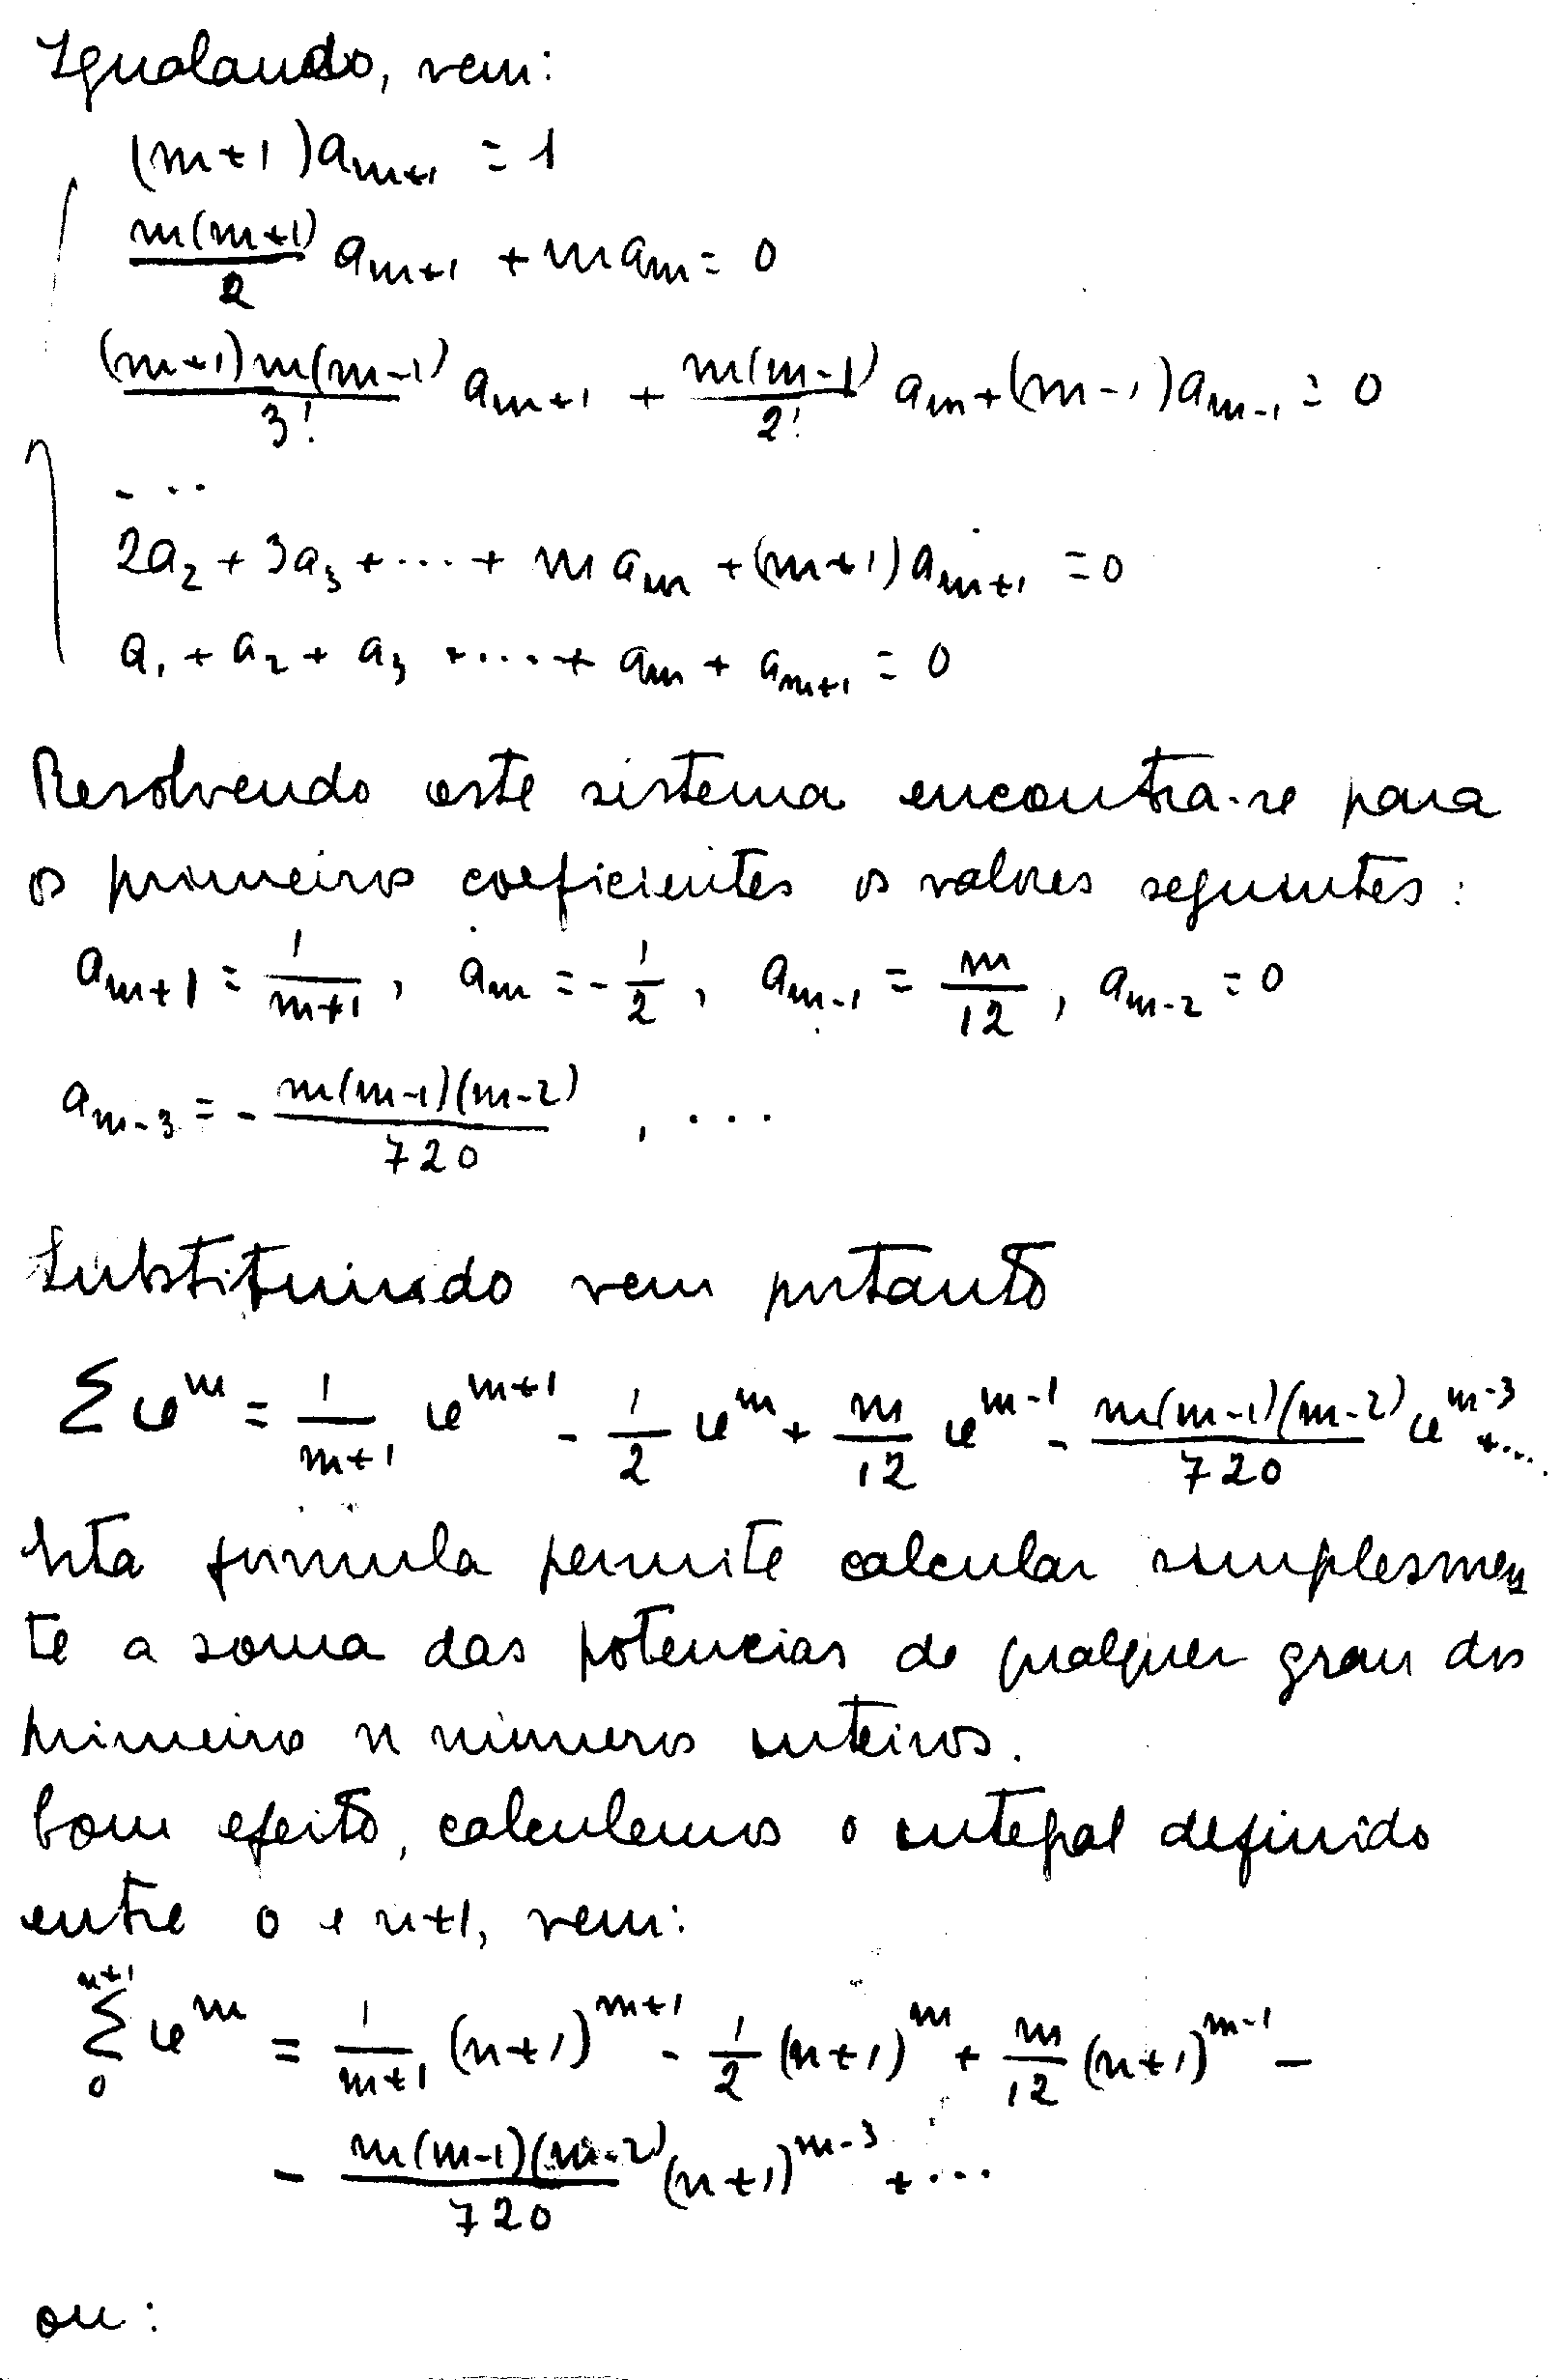 Igualando, vem:
(m+1)a_{m+1} = 1
\frac{m(m+1)}{2} a_{m+1} + m a_m = 0
\frac{(m+1)m(m-1)}{3!} a_{m+1} + \frac{m(m-1)}{2!} a_m + (m-1)a_{m-1} = 0
....
2a_2 + 3a_3 + ... + m a_m + (m+1)a_{m+1} = 0
a_1 + a_2 + a_3 + .... + a_m + a_{m+1} = 0
Resolvendo este sistema encontra-se para
os primeiros coeficientes os valores seguintes:
a_{m+1} = \frac{1}{m+1}, a_m = -\frac{1}{2}, a_{m-1} = \frac{m}{12}, a_{m-2} = 0
a_{m-3} = -\frac{m(m-1)(m-2)}{720}, ...
Substituindo vem portanto
\sum x^m = \frac{1}{m+1} x^{m+1} - \frac{1}{2} x^m + \frac{m}{12} x^{m-1} - \frac{m(m-1)(m-2)}{720} x^{m-3} + ....
Esta fórmula permite calcular simplesmen
te a soma das potencias de qualquer grau dos
primeiros n números inteiros.
Com efeito, calculemos o integral definido
entre 0 e n+1, vem:
\sum_0^{n+1} x^m = \frac{1}{m+1} (n+1)^{m+1} - \frac{1}{2} (n+1)^m + \frac{m}{12} (n+1)^{m-1} -
- \frac{m(m-1)(m-2)}{720} (n+1)^{m-3} + ...
ou: